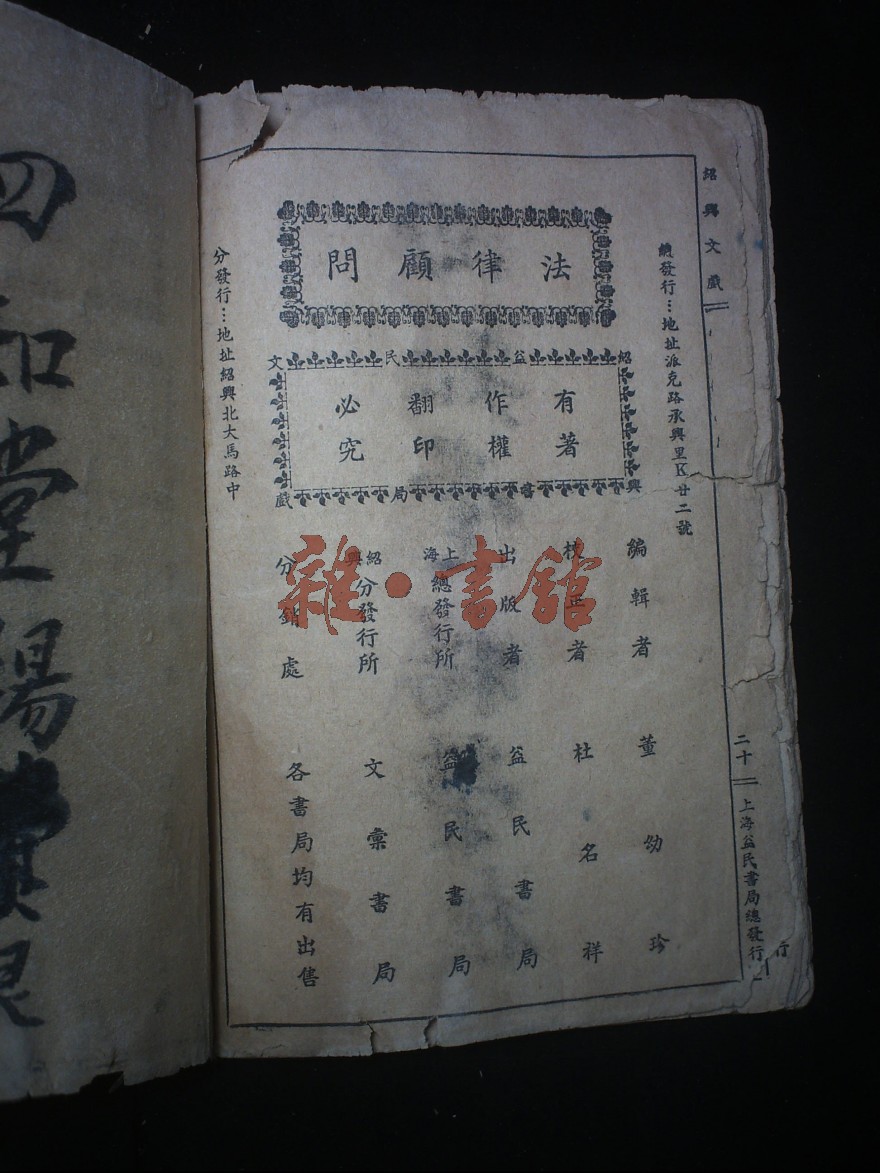 紹興文戲
二十
上海益民書局總發行
行
總發行…地址派克路承興里K廿二號
法律顧問
紹益民文
有著作權翻印必究
興書局戲
編輯者 董幼珍
校正者 杜名祥
出版者 益民書局
上海總發行所 益民書局
紹興分發行所 文彙書局
分銷處 各書局均有出售
分發行…地址紹興北大馬路中
四知堂楊
雜·書館